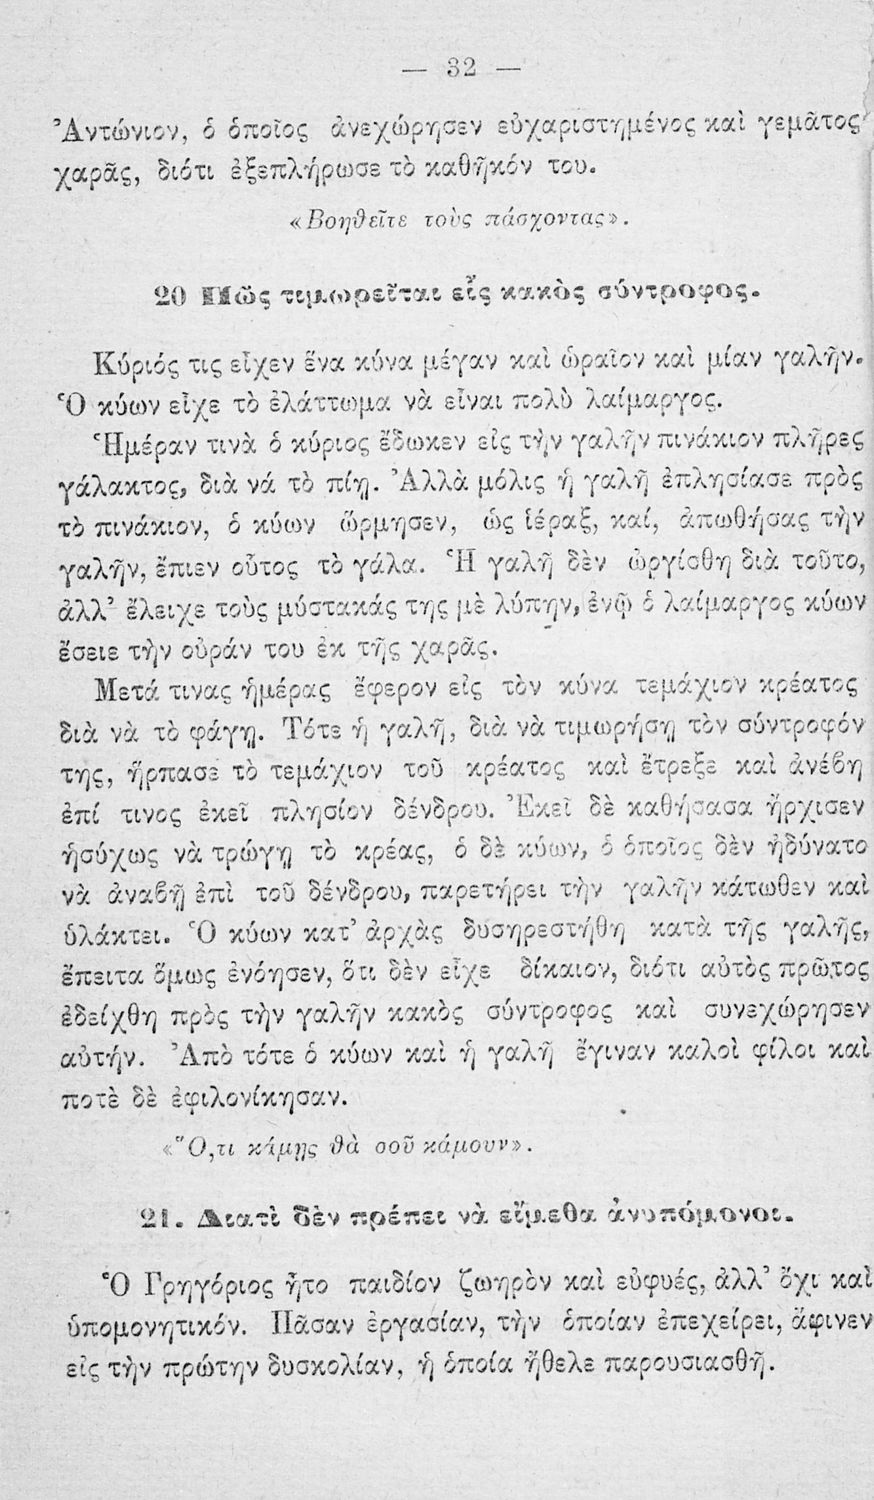 — 32 —
Ἀντώνιον, ὁ ὁποῖος ἀνεχώρησεν εὐχαριστημένος καὶ γεμᾶτος
χαρᾶς, διότι ἐξεπλήρωσε τὸ καθῆκόν του.
«Βοηθεῖτε τοὺς πάσχοντας».
20 Πῶς τιμωρεῖται εἷς κακὸς σύντροφος.
Κύριός τις εἶχεν ἕνα κύνα μέγαν καὶ ὡραῖον καὶ μίαν γαλῆν.
Ὁ κύων εἶχε τὸ ἐλάττωμα νὰ εἶναι πολὺ λαίμαργος.
Ἡμέραν τινὰ ὁ κύριος ἔδωκεν εἰς τὴν γαλῆν πινάκιον πλῆρες
γάλακτος, διὰ νά τὸ πίῃ. Ἀλλὰ μόλις ἡ γαλῆ ἐπλησίασε πρὸς
τὸ πινάκιον, ὁ κύων ὥρμησεν, ὡς ἱέραξ, καί, ἀπωθήσας τὴν
γαλῆν, ἔπιεν οὗτος τὸ γάλα. Ἡ γαλῆ δὲν ὠργίσθη διὰ τοῦτο,
ἀλλ' ἔλειχε τοὺς μύστακάς της μὲ λύπην, ἐνῷ ὁ λαίμαργος κύων
ἔσειε τὴν οὐράν του ἐκ τῆς χαρᾶς.
Μετά τινας ἡμέρας ἔφερον εἰς τὸν κύνα τεμάχιον κρέατος
διὰ νὰ τὸ φάγῃ. Τότε ἡ γαλῆ, διὰ νὰ τιμωρήσῃ τὸν σύντροφόν
της, ἥρπασε τὸ τεμάχιον τοῦ κρέατος καὶ ἔτρεξε καὶ ἀνέβη
ἐπί τινος ἐκεῖ πλησίον δένδρου. Ἐκεῖ δὲ καθήσασα ἤρχισεν
ἡσύχως νὰ τρώγῃ τὸ κρέας, ὁ δὲ κύων, ὁ ὁποῖος δὲν ἠδύνατο
νὰ ἀναβῇ ἐπὶ τοῦ δένδρου, παρετήρει τὴν γαλῆν κάτωθεν καὶ
ὑλάκτει. Ὁ κύων κατ' ἀρχὰς δυσηρεστήθη κατὰ τῆς γαλῆς,
ἔπειτα ὅμως ἐνόησεν, ὅτι δὲν εἶχε δίκαιον, διότι αὐτὸς πρῶτος
ἐδείχθη πρὸς τὴν γαλῆν κακὸς σύντροφος καὶ συνεχώρησεν
αὐτήν. Ἀπὸ τότε ὁ κύων καὶ ἡ γαλῆ ἔγιναν καλοὶ φίλοι καὶ
ποτὲ δὲ ἐφιλονίκησαν.
«Ὅ,τι κάμῃς θὰ σοῦ κάμουν».
21. Διατὶ δὲν πρέπει νὰ εἴμεθα ἀνυπόμονοι.
Ὁ Γρηγόριος ἦτο παιδίον ζωηρὸν καὶ εὐφυές, ἀλλ' ὄχι καὶ
ὑπομονητικόν. Πᾶσαν ἐργασίαν, τὴν ὁποίαν ἐπεχείρει, ἄφινεν
εἰς τὴν πρώτην δυσκολίαν, ἡ ὁποία ἤθελε παρουσιασθῆ.